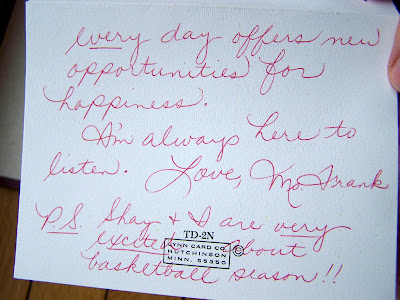 every day offers new
opportunities for
happiness.
I'm always here to
listen. Love, Mo. Frank
P.S. Shay & I are very
TD-2N
excited about
LYNN CARD CO.
HUTCHINSON
MINN. 55350
©
basketball season!!